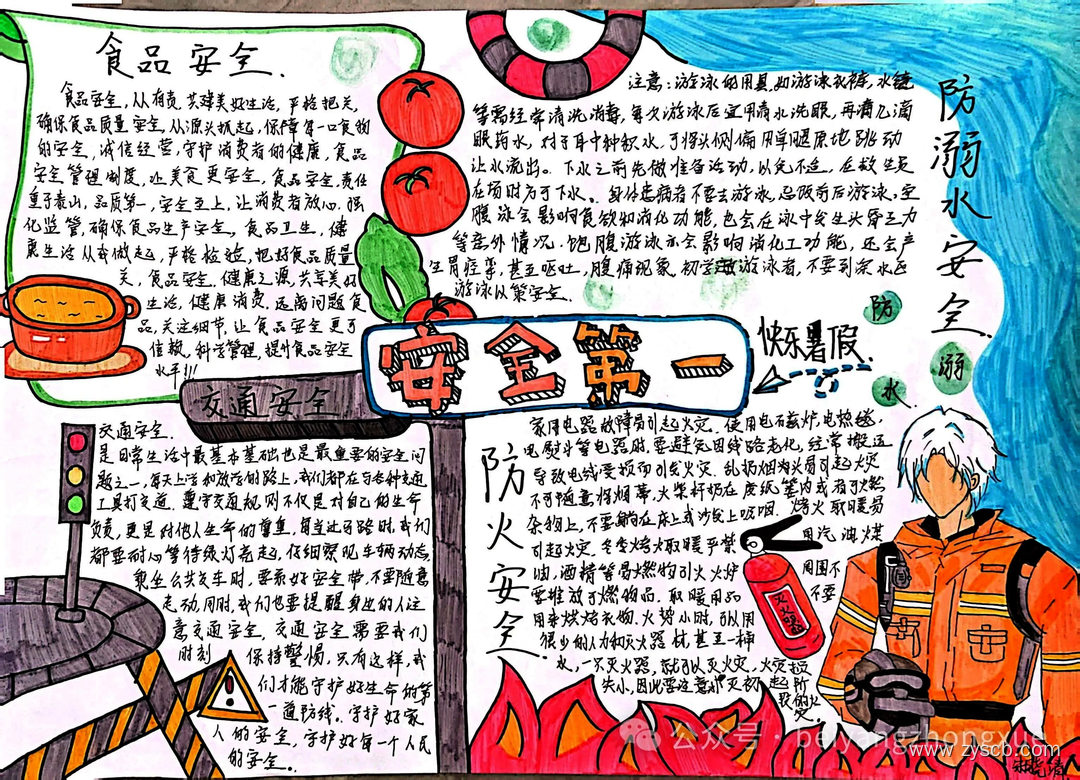 食品安全.
食品安全,从有责,共肆美好生活,严格把关,
确保食品质量安全,从源头抓起,保障每一口食物
的安全,诚信经营,守护消费者的健康,食品
安全管理制度,让美食更安全,食品安全,责任
重于泰山,品质第一,安全至上,让消费者放心,强
化监管,确保食品生产安全,食品卫生,健
康生活从我做起,严格检验,把好食品质量
关,食品安全,健康之源,共享美好
生活,健康消费,远离问题食
品,关注细节,让食品安全更可
信赖,科学管理,提升食品安全
水平!!!
注意:游泳的用具,如游泳衣裤,水镜
等需经常清洗消毒,每次游泳后宜用清水洗眼,再滴几滴
眼药水,对于耳中积水,可将头侧偏用单腿原地跳动
让水流出。下水之前先做准备活动,以免不适,在救生员
在场时方可下水。身体患病者不要去游泳,忌饭前后游泳,空
腹泳会影响食欲和消化功能,也会在泳中发生头昏乏力
等意外情况,饱腹游泳亦会影响消化功能,还会产
生胃痉挛,甚至呕吐,腹痛现象,初学游泳者,不要到深水区
游泳以策安全.
防溺水安全.
安全第一
快乐暑假.
防
溺
水
交通安全
交通安全.
是日常生活中最基本基础也是最重要的安全问
题之一,每天上学和放学的路上,我们都在与各种交通
工具打交道.遵守交通规则不仅是对自己的生命
负责,更是对他人生命的尊重,每当过马路时,我们
都要耐心等待绿灯亮起,仔细察观车辆动态
乘坐公共交车时,要系好安全带,不要随意
走动,同时,我们也要提醒身边的人注
意交通安全,交通安全需要我们
时刻保持警惕,只有这样,我
们才能守护好生命的第
一道防线。守护好家
人的安全,守护好每一个人民
的安全。
防火安全.
家用电器故障易引起火灾.使用电石磁炉,电热毯,
电熨斗等电器时,要避免因线路老化,经常搬运
导致电线受损而引气火灾.乱扔烟头易引起火灾
不可随意将烟蒂,火柴杆扔在废纸篓内或有可燃
杂物上,不要躺在床上或沙发上吸烟.烤火取暖易
引起火灾.冬季烤火取暖严禁用汽油煤
油,酒精等易燃物引火火炉周围不
要堆放可燃物品.取暖用品不要
用来烘烤衣物.火势小时,可以用
很少的人力和灭火器材,甚至一桶
水,一只灭火器,就可以灭火灾,火灾起
灭火器
公众号·beiyangzhongxue
www.zyscb.com